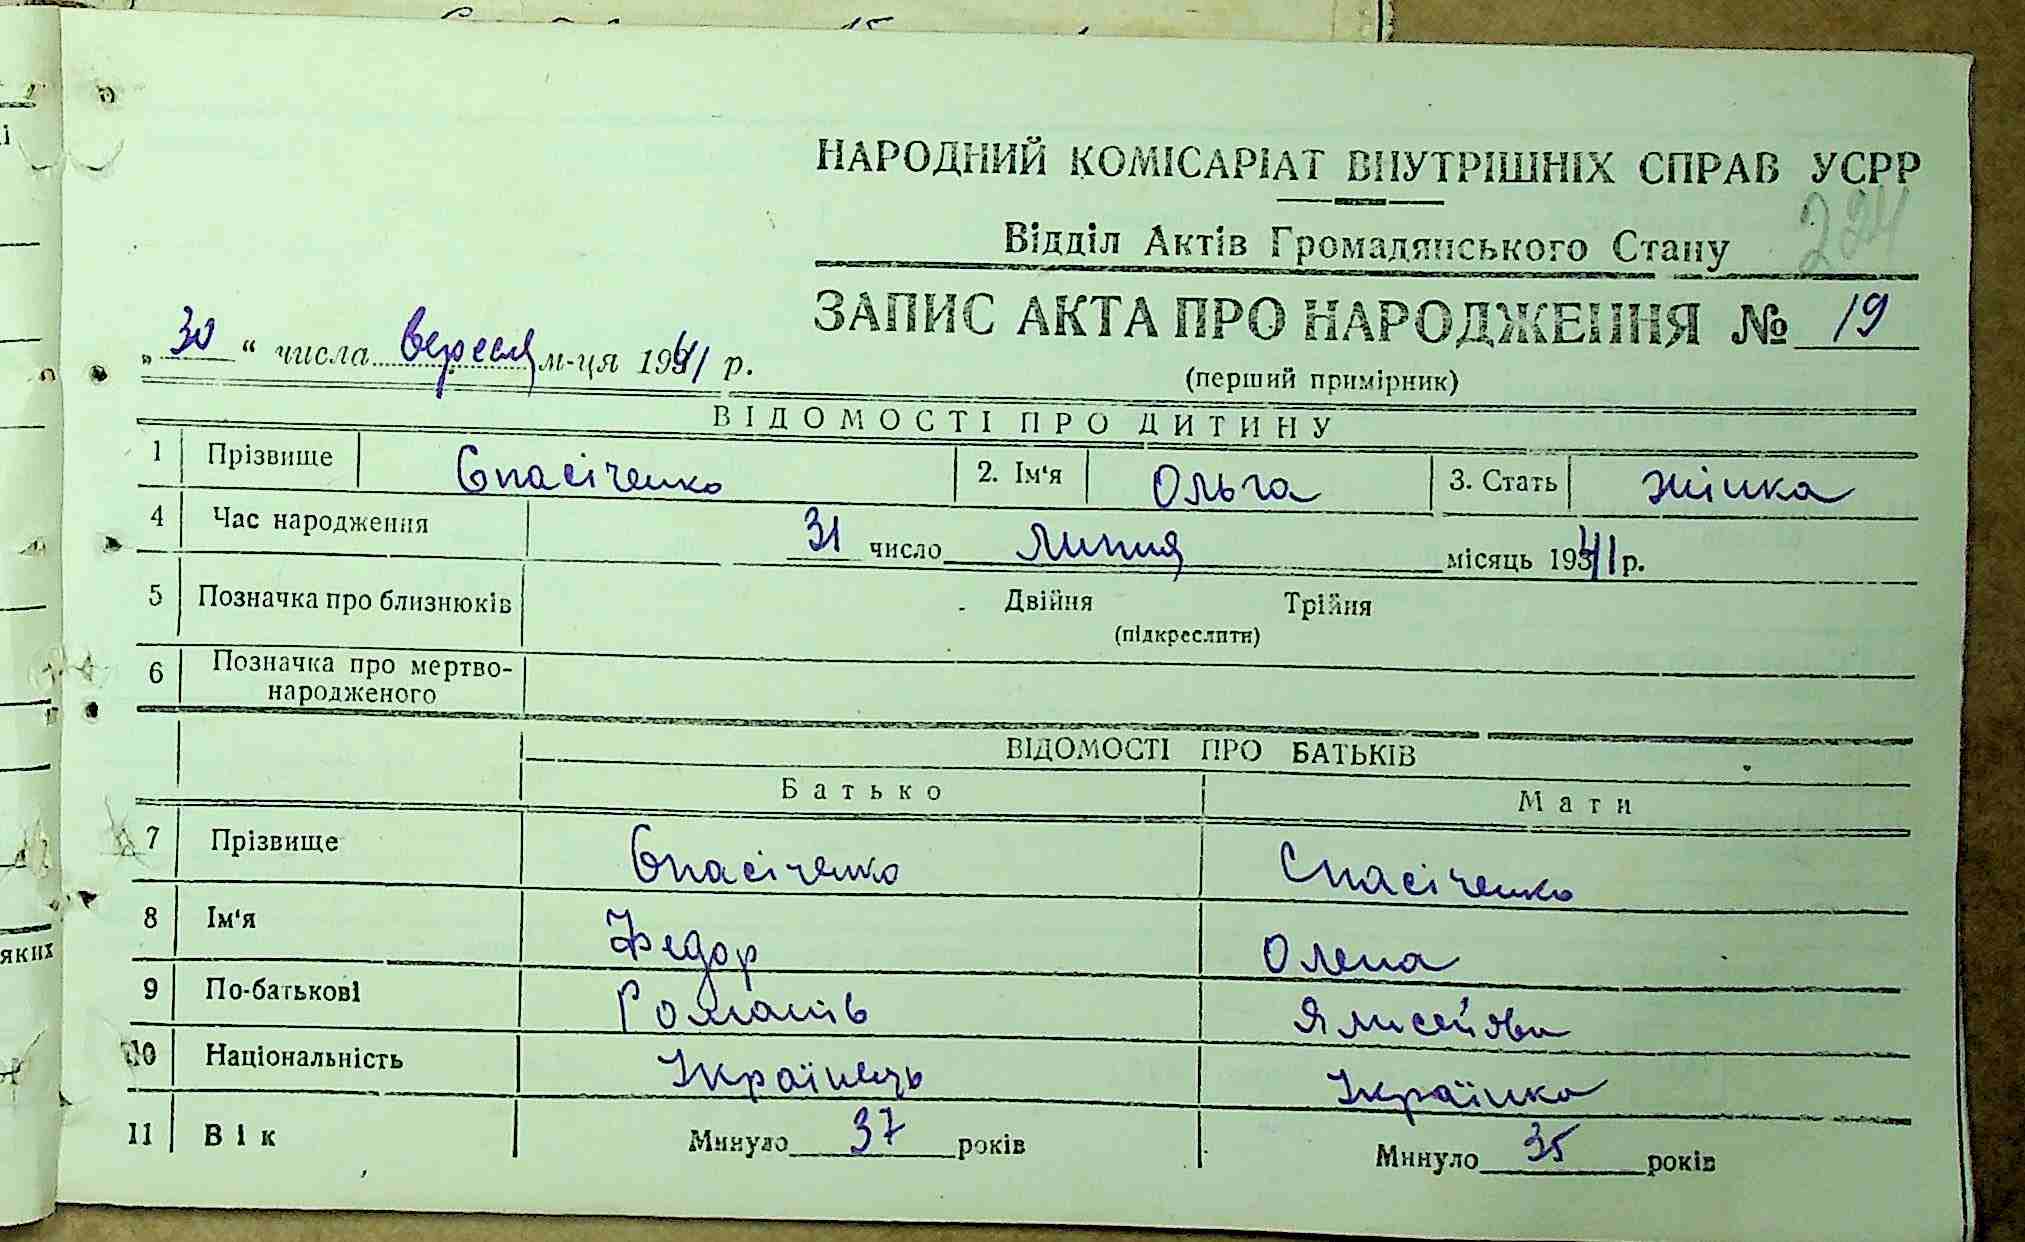 НАРОДНИЙ КОМІСАРІАТ ВНУТРІШНІХ СПРАВ УСРР
224
Відділ Актів Громадянського Стану
ЗАПИС АКТА ПРО НАРОДЖЕННЯ № 19
„30“ числа вересня м-ця 1941 р.
(перший примірник)
ВІДОМОСТІ ПРО ДИТИНУ
1 Прізвище Спасіченко 2. Ім'я Ольга 3. Стать жінка
4 Час народження 31 число липня місяць 1941 р.
5 Позначка про близнюків Двійня Трійня
(підкреслити)
6 Позначка про мертво-
народженого
ВІДОМОСТІ ПРО БАТЬКІВ
Батько Мати
7 Прізвище Спасіченко Спасіченко
8 Ім'я Федор Олена
9 По-батькові Романів
10 Національність Українець Українка
11 Вік Минуло 37 років Минуло 35 років
яких